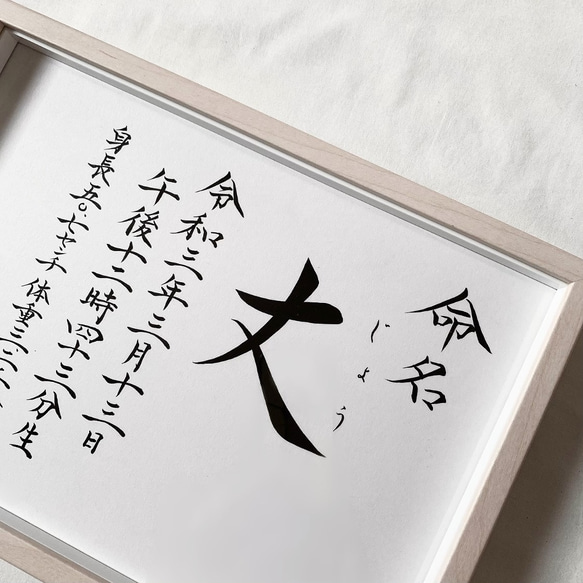 命名
じょう
丈
令和三年三月十三日
午後十二時四十三分生
身長五〇・七センチ 体重三